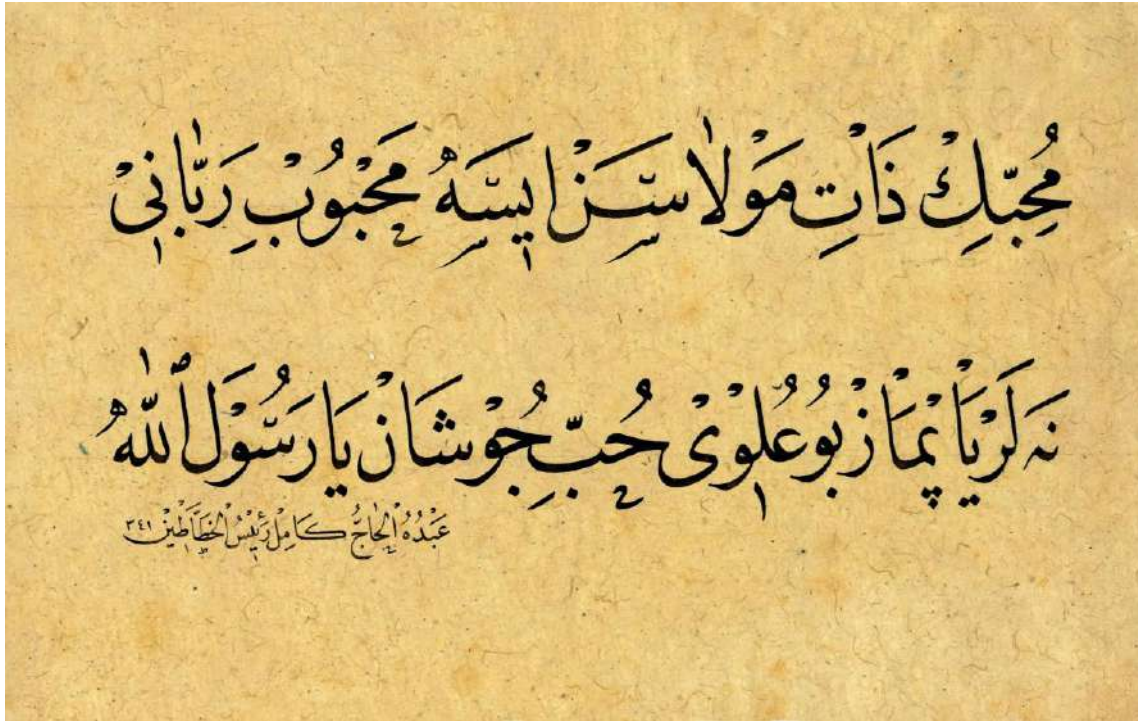 مُحِبّكِ ذَاتِ مَوْلَا سِّنْ ايسَّهْ مَحْبُوبِ رَبَّانِیْ
نَه لَرْ يَاپْمَازْ بُو عُلْوِیْ حُبِّ جُوشَانْ يَا رَسُولَ اللّٰهْ
عَبْدُهُ الْحَاجُّ كَامِلْ رَئِيسُ الْخَطَّاطِينْ ٣٤١